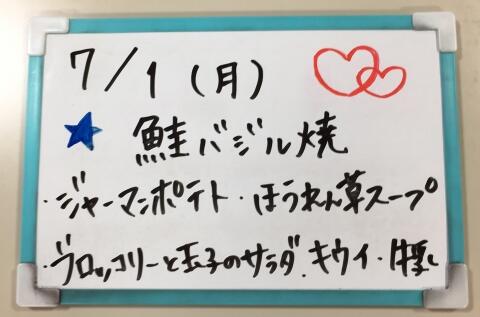 7/1(月)
★鮭バジル焼
・ジャーマンポテト・ほうれん草スープ
・ブロッコリーと玉子のサラダ・キウイ・牛乳